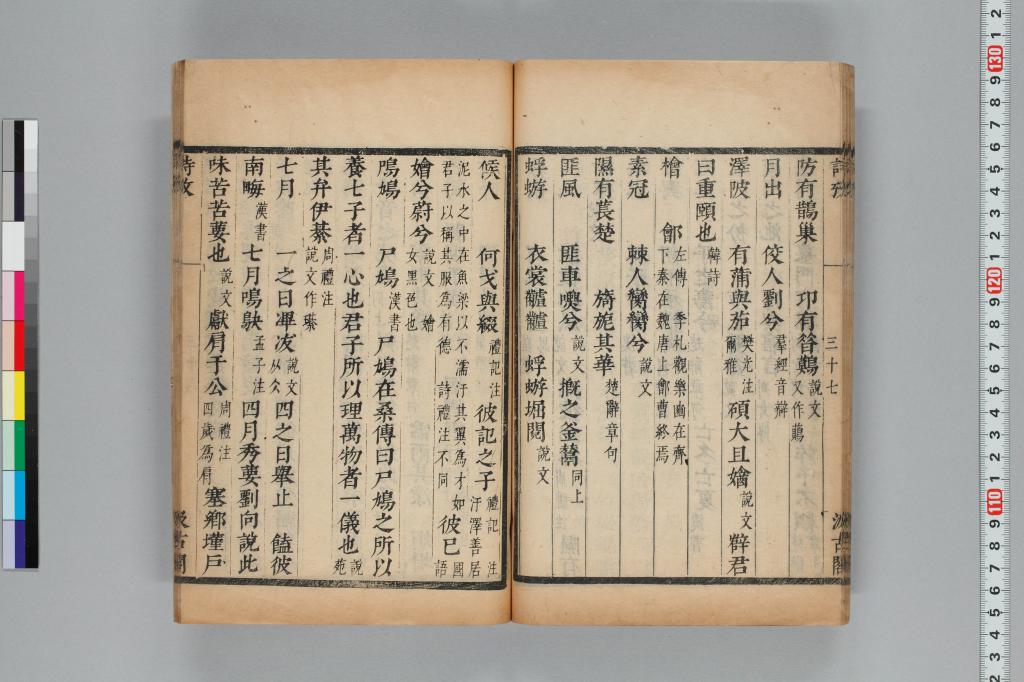 防有鵲巢　卬有旨鷊說文又作䴘
月出　佼人劉兮羣經音辯
澤陂　有蒲與茄樊光注爾雅碩大且㜝說文辟君
曰重頤也韓詩
檜　鄶左傳季札觀樂豳在齊下秦在魏唐上鄶曹終焉
素冠　棘人臠臠兮說文
隰有萇楚　旖旎其華楚辭章句
匪風　匪車嘌兮說文摡之釜鬵同上
蜉蝣　衣裳𪓐𪓐　蜉蝣堀閱說文
三十七
汲古閣
候人　何戈與綴禮記注彼記之子禮記注汙澤善居
泥水之中在魚梁以不濡汙其翼為才如君子以稱其服為有德　詩禮注不同彼已國語
嬒兮蔚兮說文嬒女黑色也
鳲鳩　尸鳩漢書尸鳩在桑傳曰尸鳩之所以
養七子者一心也君子所以理萬物者一儀也說苑
其弁伊綦周禮注說文作㻽
七月　一之日㓖冹說文从仌四之日舉止　饁彼
南畮漢書七月鳴鴃孟子注四月秀葽劉向說此
味苦苦葽也說文獻肩于公周禮注四歲為肩塞鄉墐戶
詩攷
汲古閣